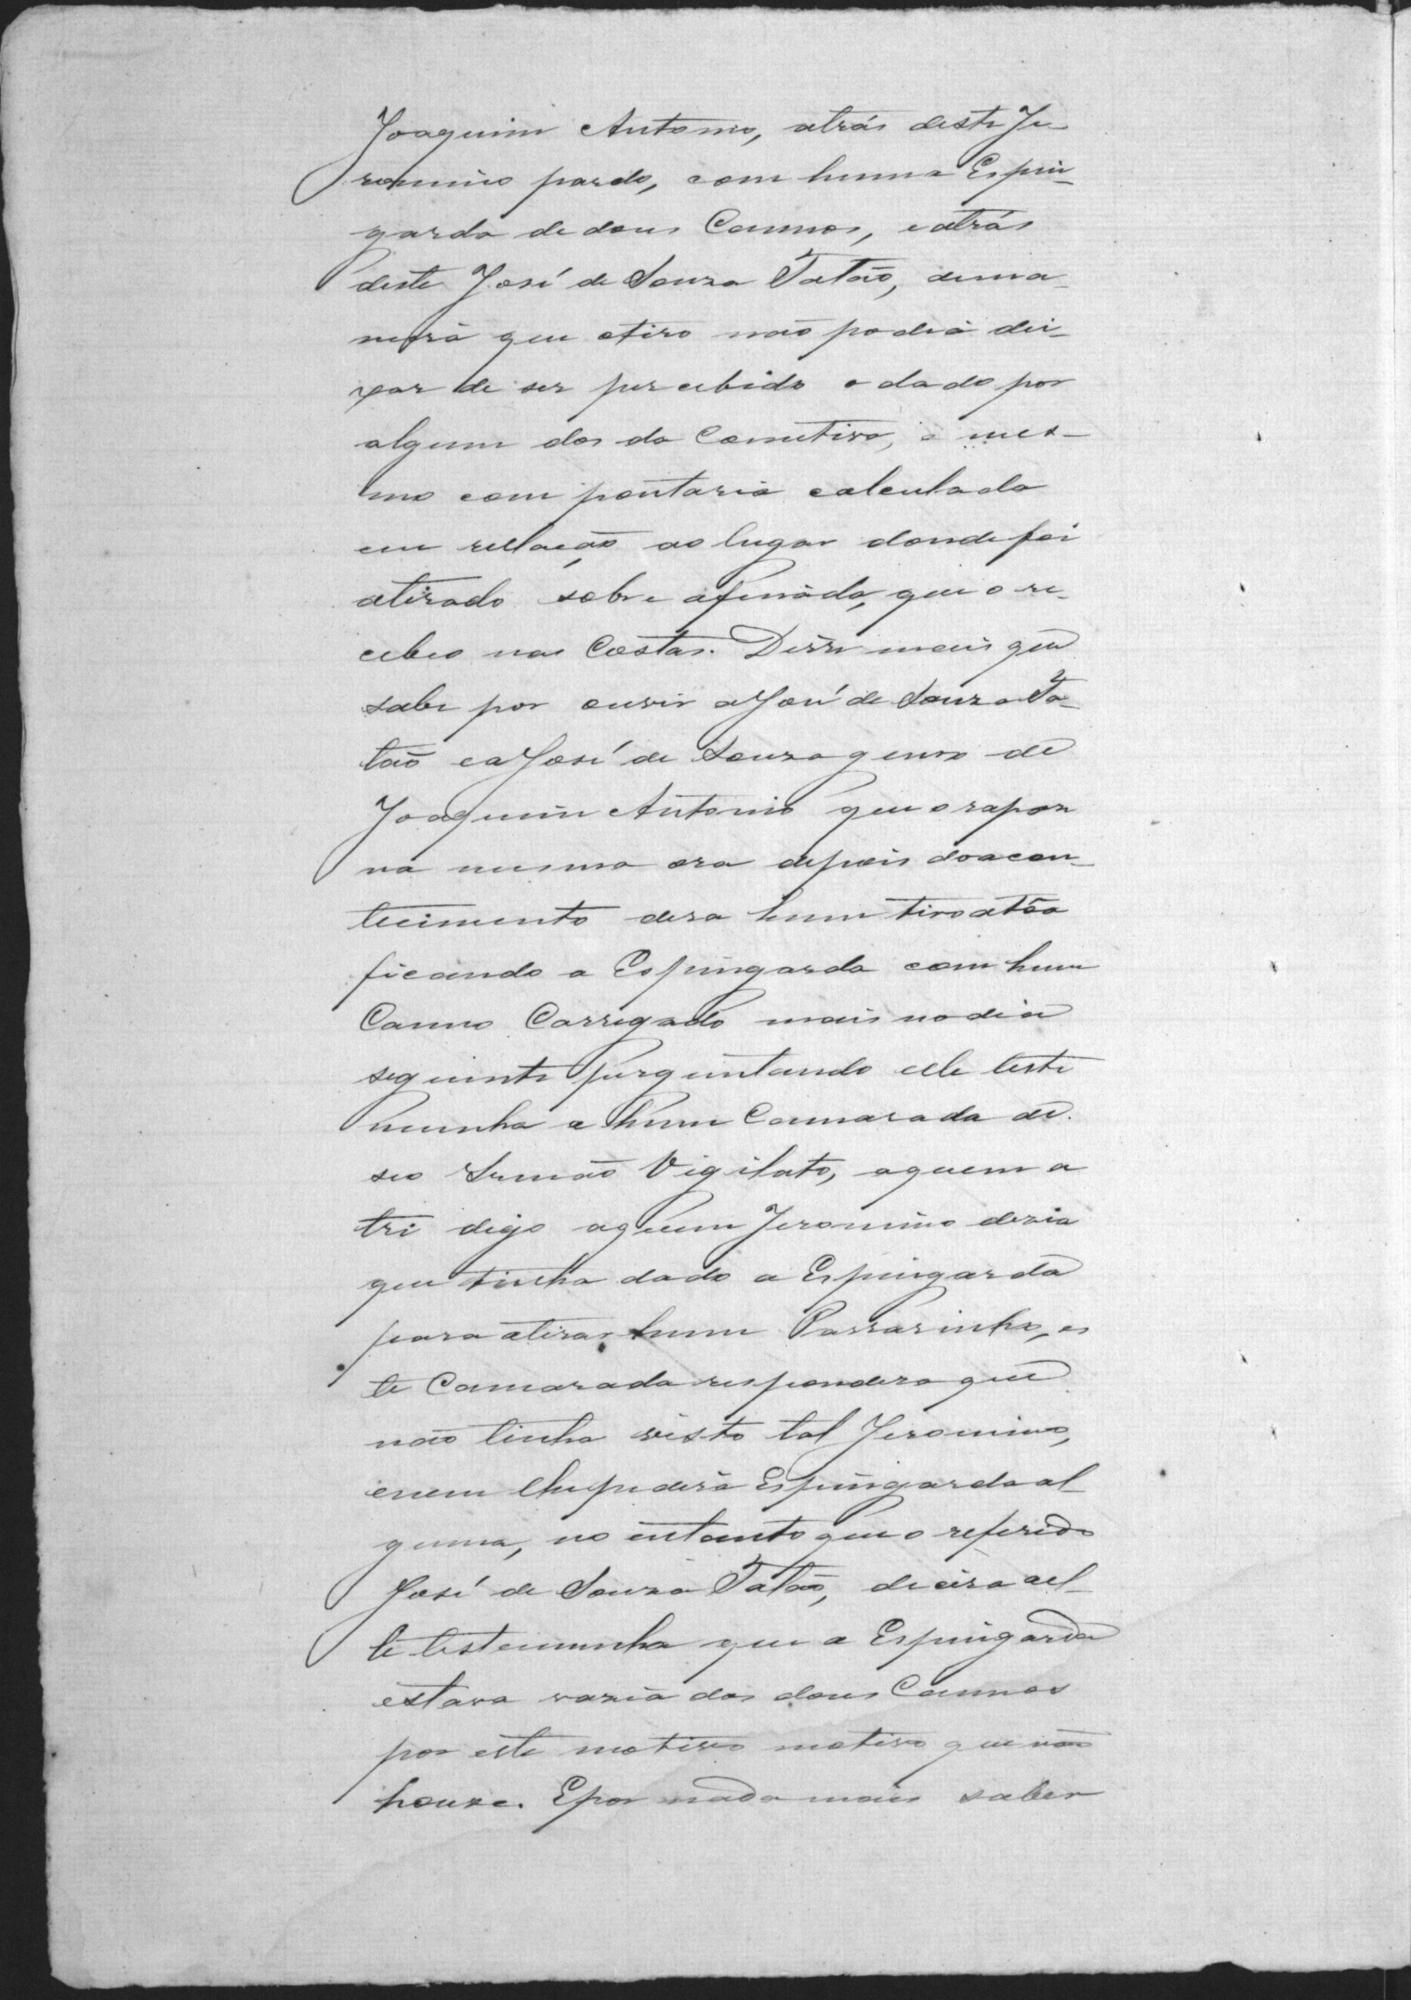 Joaquim Antonio, atrás deste Je-
ronimo pardo, com huma Espin-
garda de dous Cannos, e atrás
deste José de Souza Tatão, dema-
neira que o tiro não podia dei-
xar de ser percebido e dado por
algum dos da Comitiva, e mes-
mo com pontaria calculada
em rellação ao lugar donde foi
atirado sobre a finada, que o re-
cebeo nas Costas. Disse mais que
sabe por ouvir a José de Souza Ta-
tão e a José de Souza genro de
Joaquim Antonio que o rapaz
na mesma ora depois do acon-
tecimento dera hum tiro atôa
ficando a Espingarda com hum
Canno Carregado mais no dia
seguinte perguntando elle teste
munha a hum Camarada de
seo Irmão Vigilato, aquem a
tri digo aquem Jeronimo dezia
que tinha dado a Espingarda
para atirar hum Passarinho, es
te Camarada respondera que
não tinha visto tal Jeronimo,
enem lhe pedira Espingarda al-
guma, no entanto que o referido
José de Souza Tatão, dicera ael-
le testemunha que a Espingarda
estava vazia dos dous Cannos
por este motivo motivo que não
houve. E por nada mais saber